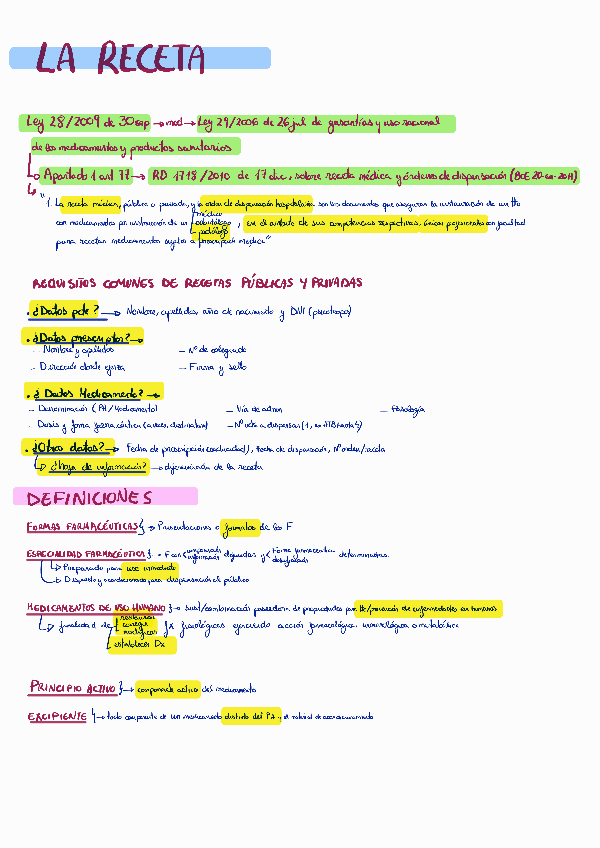 LA RECETA
Ley 28/2009 de 30 sep → mod → Ley 29/2006 de 26 jul de garantías y uso racional
de los medicamentos y productos sanitarios
Apartado 1 art 77 → RD 1718/2010 de 17 dic, sobre receta médica y órdenes de dispensación (BOE 20-en-2011)
"1. La receta médica, pública o privada, y la orden de dispensación hospitalaria son los documentos que aseguran la instauración de un tto
con medicamentos por instrucción de un médico odontólogo podólogo, en el ámbito de sus competencias respectivas, únicos profesionales con facultad
para recetar medicamentos sujetos a prescripción médica"
REQUISITOS COMUNES DE RECETAS PÚBLICAS Y PRIVADAS
· ¿Datos pcte? → Nombre, apellidos, año de nacimiento y DNI (psicotropo)
· ¿Datos prescriptor? →
– Nombre y apellidos – Nº de colegiado
– Dirección donde ejerza – Firma y sello
· ¿Datos Medicamento? →
– Denominación (PA/Medicamento) – Vía de admon – Posología
– Dosis y forma farmacéutica – Nº uds a dispensar
· ¿Otros datos? → Fecha de prescripción, Fecha de dispensación, Nº orden/receta
¿Hoja de información? → de la receta
DEFINICIONES
FORMAS FARMACÉUTICAS } → Presentaciones o formatos de los F
ESPECIALIDAD FARMACÉUTICA } · F con composición información definidas y < Forma farmacéutica dosificación determinadas.
↳ Preparado para uso inmediato
↳ Dispuesto y acondicionado para dispensación al público
MEDICAMENTOS DE USO HUMANO } → sust/combinación poseedora de propiedades para tto/prevención de enfermedades en humanos
↳ finalidad de restaurar corregir modificar } fx fisiológicas ejerciendo acción farmacológica inmunológica o metabólica
establecer Dx
PRINCIPIO ACTIVO } → componente activo del medicamento
EXCIPIENTE } → todo componente de un medicamento distinto del PA y el material de acondicionamiento